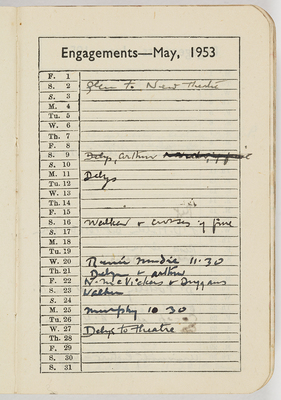 Engagements—May, 1953
F. 1
S. 2 Glen to New Theatre
S. 3
M. 4
Tu. 5
W. 6
Th. 7
F. 8
S. 9 Delys, Arthur
S. 10
M. 11 Delys
Tu. 12
W. 13
Th. 14
F. 15
S. 16 Walker & if fine
S. 17
M. 18
Tu. 19
W. 20 Mudie 11.30
Th. 21 Delys & Arthur
F. 22 McVickers & Duggans
S. 23 Walker
S. 24
M. 25 Murphy 10 30
Tu. 26
W. 27 Delys to Theatre
Th. 28
F. 29
S. 30
S. 31